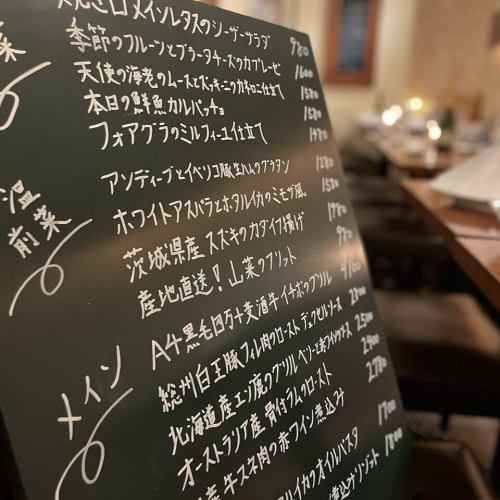 焼き白メインレタスのシーザーサラダ 980
菜
季節のフルーツとブラータチーズのカプレーゼ 1600
天使の海老のムースとズッキーニのカネロニ仕立て 1580
本日の鮮魚カルパッチョ 1580
フォアグラのミルフィーユ仕立て 1480
温
前菜
アンディーブとイベリコ豚生ハムのグラタン 1280
ホワイトアスパラとホタルイカのミモザ風 1580
茨城県産 スズキのカダイフ揚げ 1780
産地直送!山菜のフリット 980
メイン
A4黒毛四万十麦酒牛イチボのグリル 4100
総州白王豚フィレ肉のロースト デュクセルソース 2800
北海道産エゾ鹿のグリル ベリーと赤ワインソース 2500
オーストラリア産 骨付ラムのロースト 2900
産牛スネ肉の赤ワイン煮込み 2780
ルイカのオイルパスタ 1700
リゾット 1800